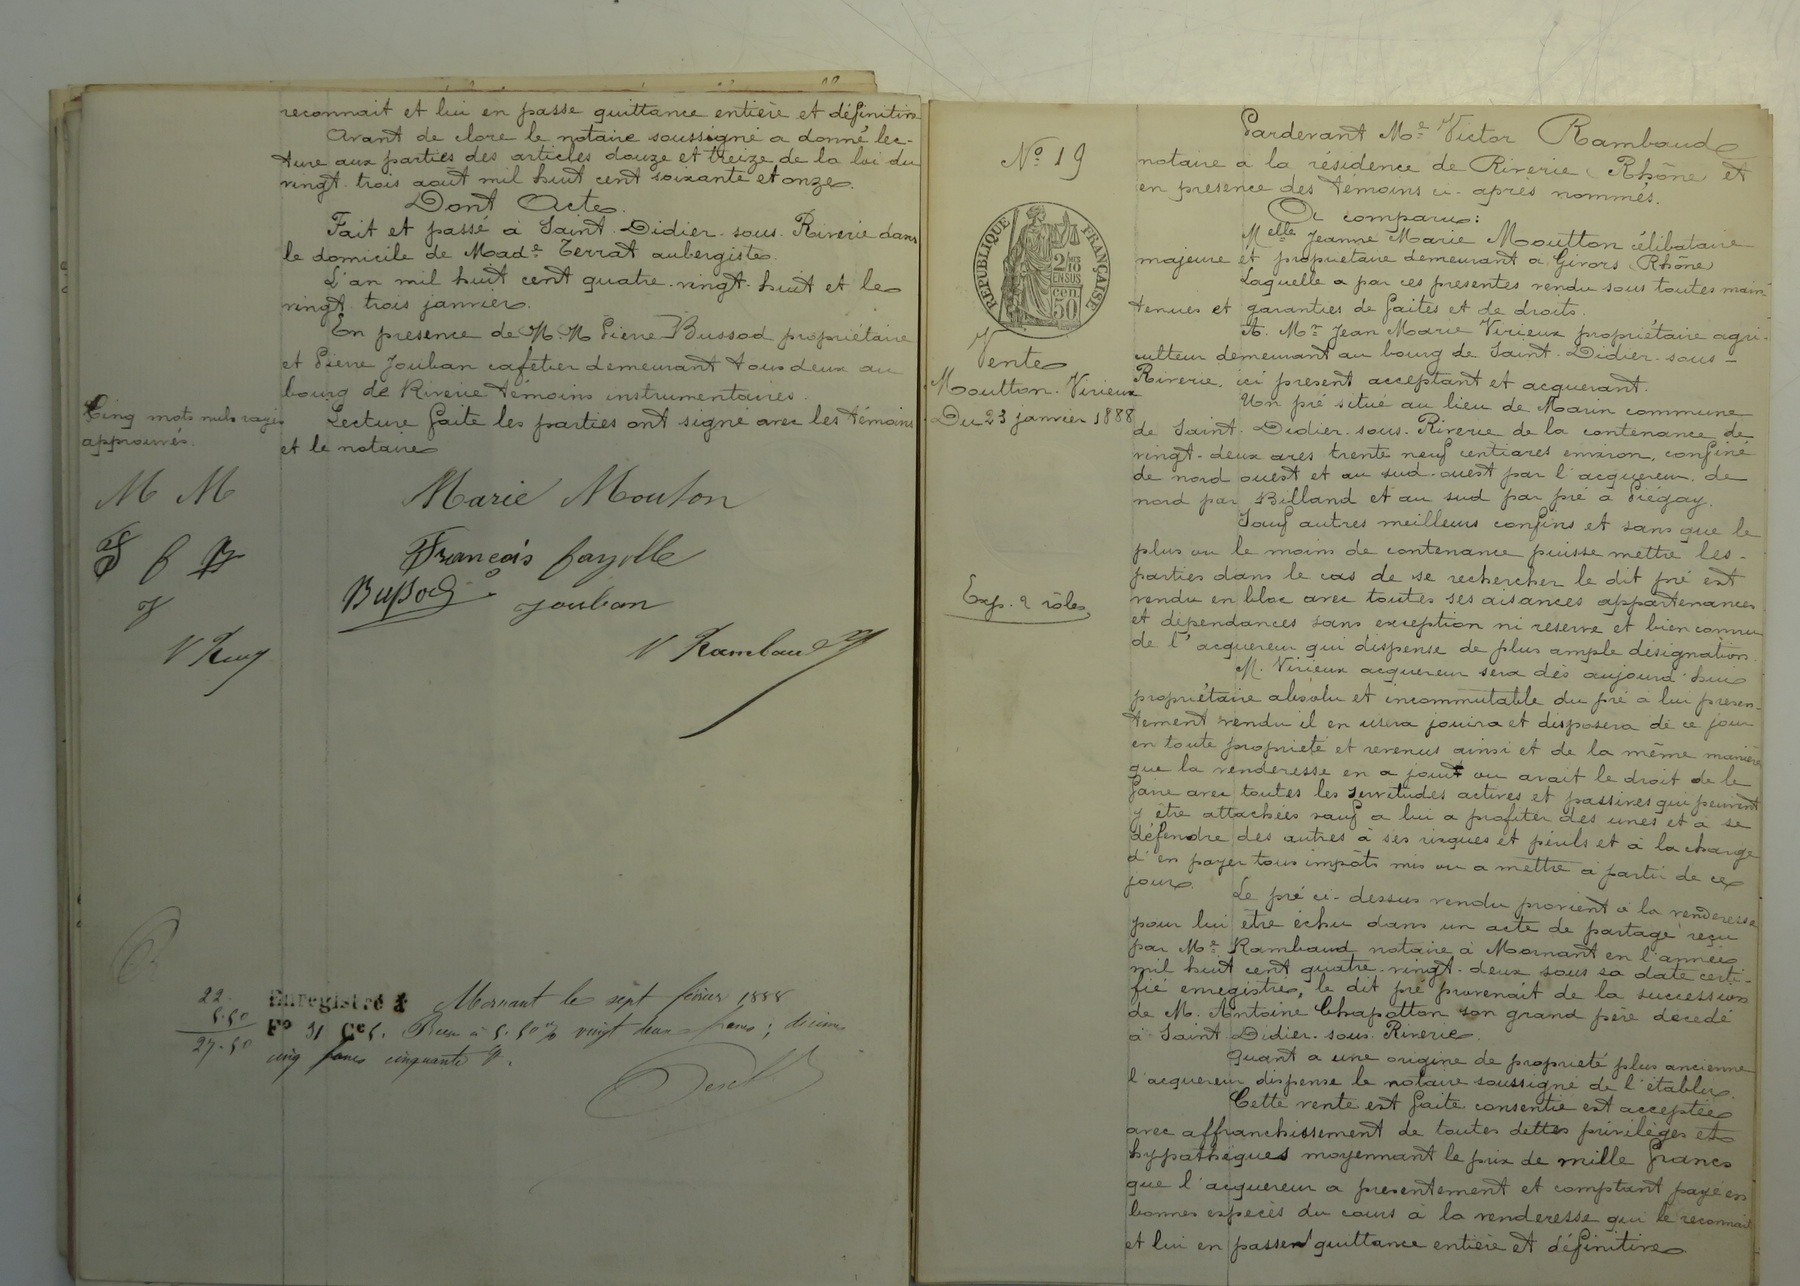 reconnait et lui en passe quittance entière et définitive
Avant de clore le notaire soussigné a donné lec-
ture aux parties des articles douze et treize de la loi du
vingt-trois août mil huit cent soixante et onze.
Dont Acte.
Fait et passé à Saint-Didier-sous-Riverie dans
le domicile de Made Terrat aubergiste.
L'an mil huit cent quatre-vingt-huit et le
vingt-trois janvier.
En présence de M.M. Pierre Bussod propriétaire
et Pierre Jouban cafetier demeurant tous deux au
bourg de Riverie témoins instrumentaires.
Lecture faite les parties ont signé avec les témoins
et le notaire
Cinq mots nuls rayés
approuvés.
M M
Marie Mouton
François fayolle
Bussod
Jouban
V Rambaud
22.
5.50
27.50
Enregistré à Mornant le sept février 1888
Fo 31 Ce 5. Reçu à 5.50 % vingt deux francs ; décimes
cinq francs cinquante c.
No 19
RÉPUBLIQUE FRANÇAISE
2/10
EN SUS
50
cen
Vente
Moutton-Virieux
Du 23 janvier 1888
Exp. 2 rôles
Pardevant Me Victor Rambaud
notaire à la résidence de Riverie (Rhône) et
en présence des témoins ci-après nommés.
A comparu:
Melle Jeanne Marie Moutton célibataire
majeure et propriétaire demeurant à Givors (Rhône)
Laquelle a par ces présentes vendu sous toutes main-
tenues et garanties de faites et de droits.
A. Mr Jean Marie Virieux propriétaire agri-
culteur demeurant au bourg de Saint-Didier-sous-
Riverie, ici présent acceptant et acquerant.
Un pré situé au lieu de Marin commune
de Saint-Didier-sous-Riverie de la contenance de
vingt-deux ares trente neuf centiares environ, confiné
de nord ouest et au sud-ouest par l'acquereur, de
nord par Billand et au sud par pré à Piégay.
Sauf autres meilleurs confins et sans que le
plus ou le moins de contenance puisse mettre les-
parties dans le cas de se rechercher le dit pré est
vendu en bloc avec toutes ses aisances appartenances
et dépendances sans exception ni réserve et bien connu
de l'acquereur qui dispense de plus ample désignation.
M. Virieux acquereur sera dès aujourd'hui
propriétaire absolu et incommutable du pré à lui présen-
tement vendu il en usera jouira et disposera de ce jour
en toute propriété et revenus ainsi et de la même manière
que la venderesse en a jouit ou avait le droit de le
faire avec toutes les servitudes actives et passives qui peuvent
y être attachées sauf à lui à profiter des unes et à se
défendre des autres à ses risques et périls et à la charge
d'en payer tous impôts mis ou à mettre à partir de ce
jour.
Le pré ci-dessus vendu provient à la venderesse
pour lui être échu dans un acte de partage reçu
par Me Rambaud notaire à Mornant en l'année
mil huit cent quatre-vingt-deux sous sa date certi-
fié enregistré, le dit pré provenait de la succession
de M. Antoine Chapotton son grand père décédé
à Saint-Didier-sous-Riverie.
Quant à une origine de propriété plus ancienne
l'acquereur dispense le notaire soussigné de l'établir.
Cette vente est faite consentie est acceptée
avec affranchissement de toutes dettes privilèges et
hypothèques moyennant le prix de mille francs
que l'acquereur a présentement et comptant payé en
bonnes espèces du cours à la venderesse qui le reconnait
et lui en passer quittance entière et définitive